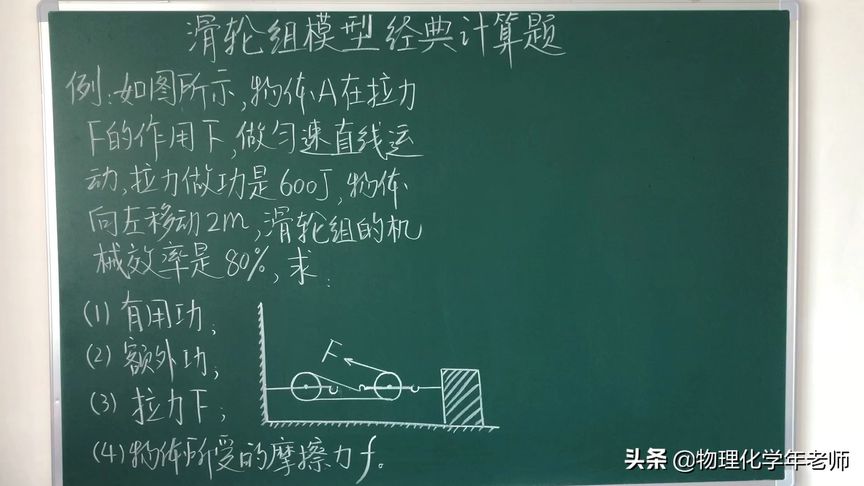 滑轮组模型经典计算题
例:如图所示,物体A在拉力
F的作用下,做匀速直线运
动,拉力做功是600J,物体
向左移动2m,滑轮组的机
械效率是80%,求:
(1)有用功;
(2)额外功;
(3)拉力F;
(4)物体所受的摩擦力f。
F
头条 @物理化学年老师